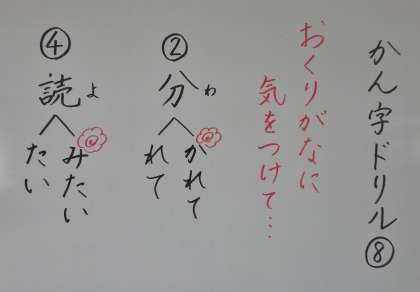 かん字ドリル⑧
おくりがなに
気をつけて…
②
分わ
かれて
れて
④
読よ
みたい
たい